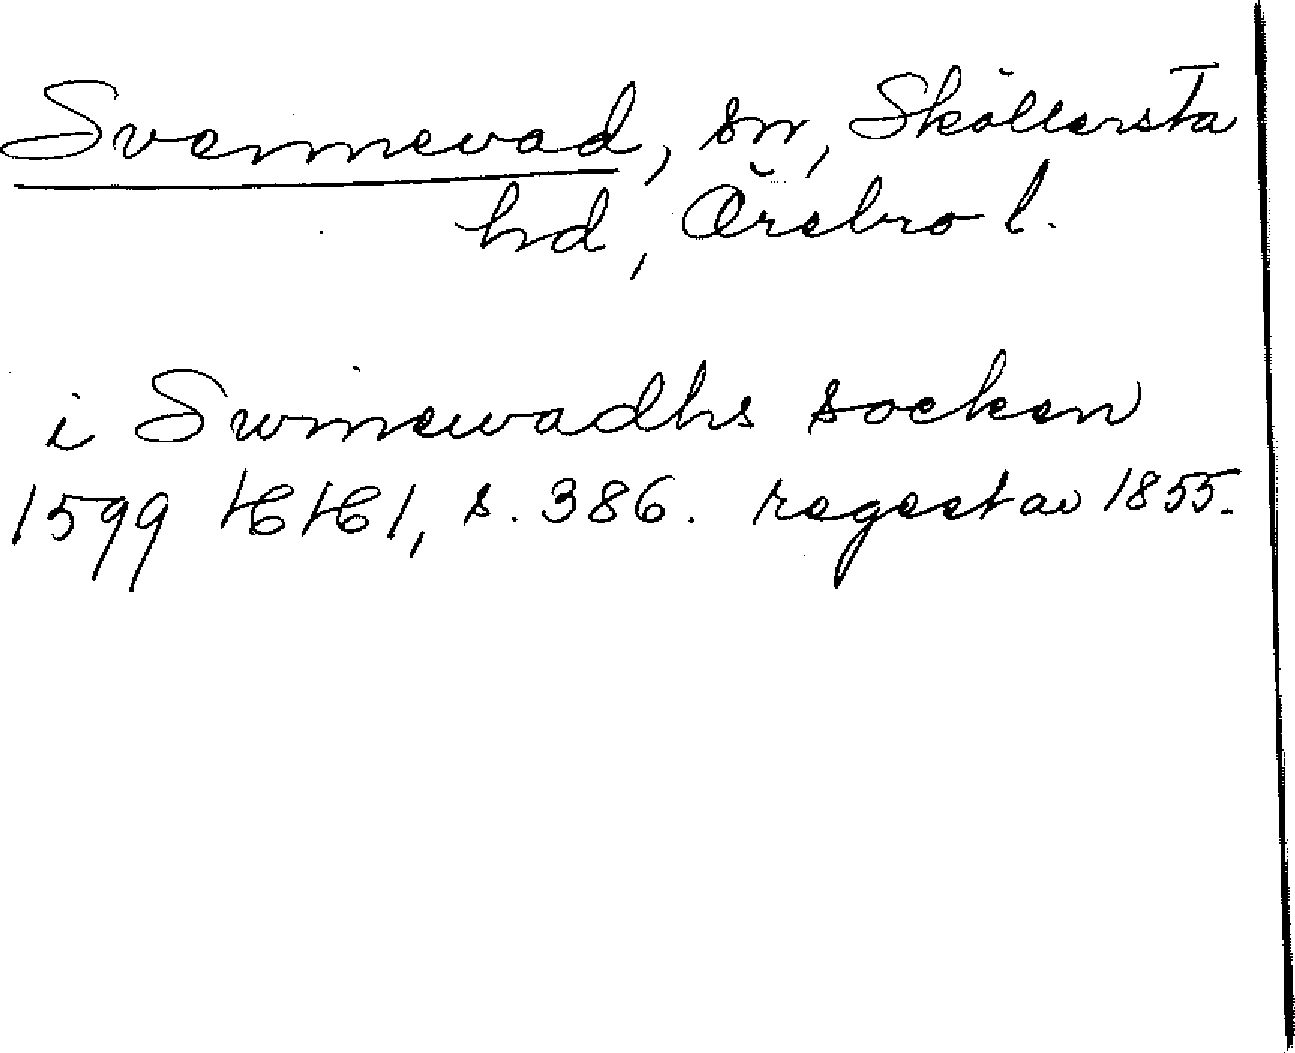 Svennevad, sn, Sköllersta
hd, Örebro l.
i Swinewadhs socken
1599 HH 1, s. 386. regest av 1855.